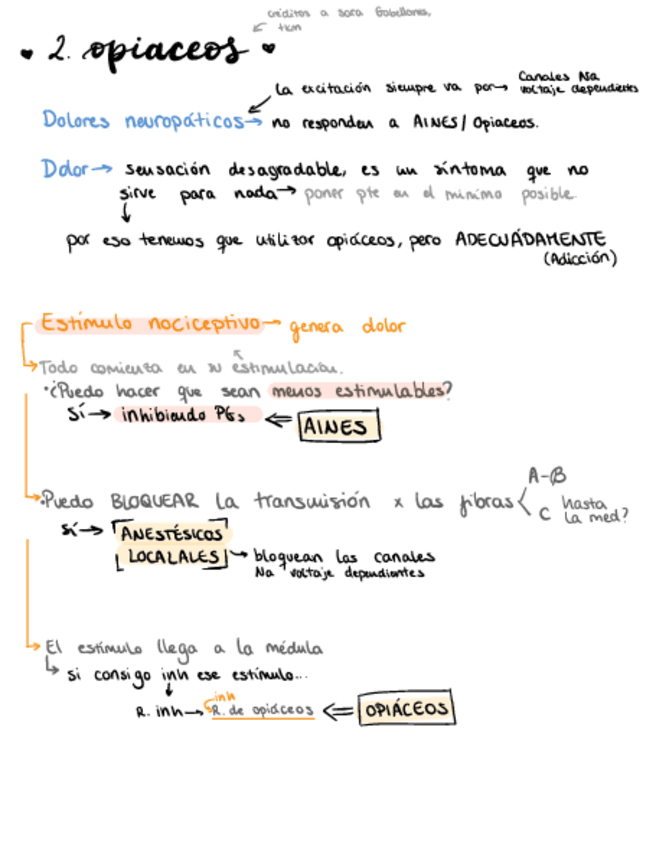 créditos a sara Gabellones,
tkm
2. opiaceos
La excitación siempre va por → Canales Na
voltaje dependientes
Dolores neuropáticos → no responden a AINES/Opiaceos.
Dolor → sensación desagradable, es un síntoma que no
sirve para nada → poner pte en el mínimo posible.
por eso tenemos que utilizar opiáceos, pero ADECUÁDAMENTE
(Adicción)
Estímulo nociceptivo → genera dolor
Todo comienza en su estimulación.
·¿Puedo hacer que sean menos estimulables?
Sí → inhibiendo PGs ⇐ AINES
·Puedo BLOQUEAR la transmisión x las fibras < A-β
C hasta
la med?
sí → ANESTÉSICOS
LOCALALES → bloquean los canales
Na voltaje dependientes
El estímulo llega a la médula
si consigo inh ese estímulo...
inh
R. inh → R. de opiáceos ⇐ OPIÁCEOS